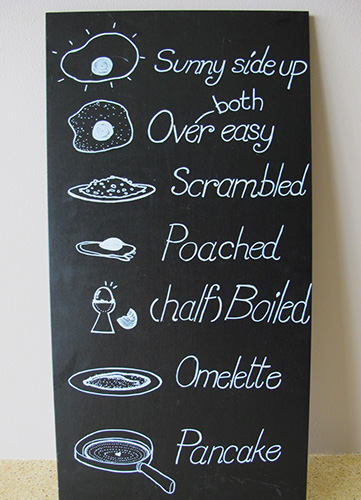 Sunny side up
both
Over easy
Scrambled
Poached
(half) Boiled
Omelette
Pancake